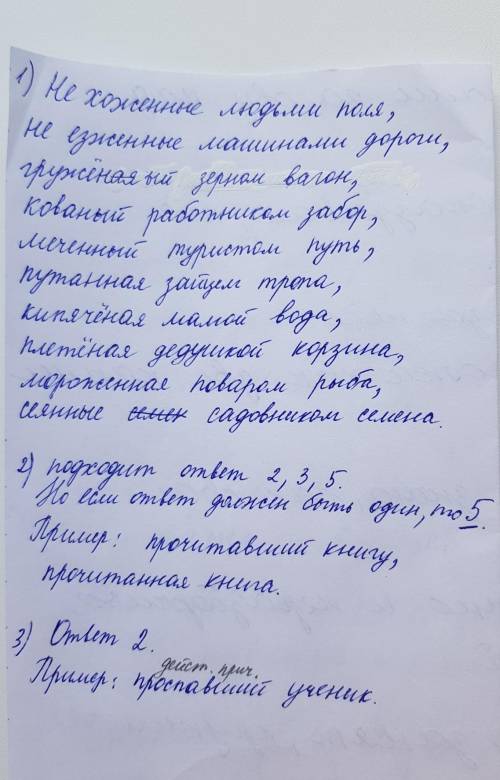 1) Не хоженные людьми поля,
не езженные машинами дороги,
гружёный зерном вагон,
кованый работником забор,
меченный туристом путь,
путанная зайцем тропа,
кипячёная мамой вода,
плетёная дедушкой корзина,
мороженная поваром рыба,
сеянные семен садовником семена.
2) подходит ответ 2, 3, 5.
Но если ответ должен быть один, то 5.
Пример: прочитавший книгу,
прочитанная книга.
3) Ответ 2.
дейст. прич.
Пример: проспавший ученик.